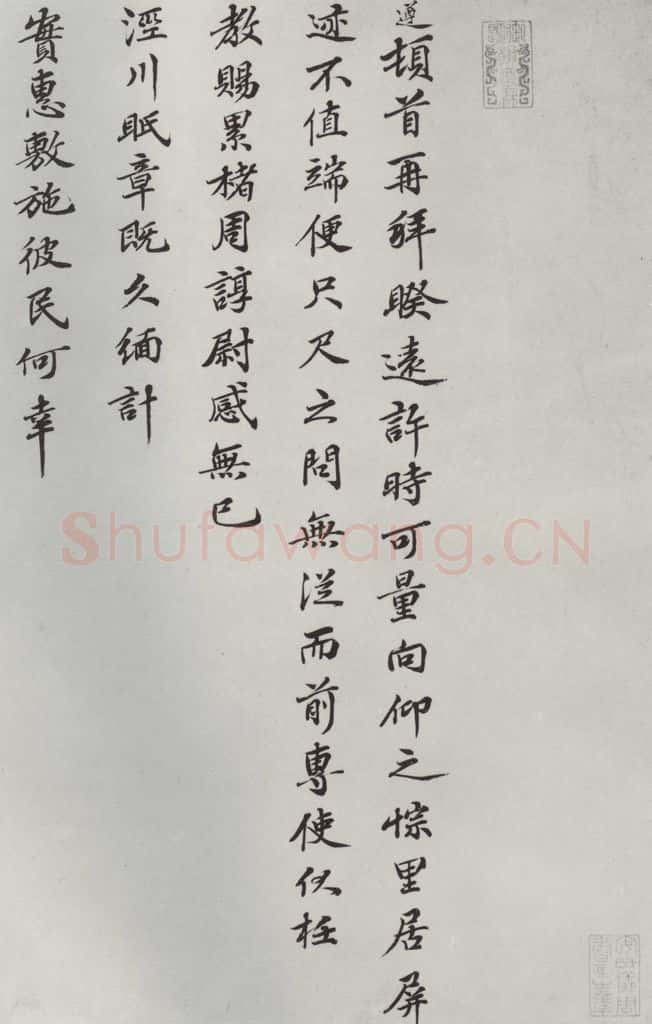 遵頓首再拜睽遠許時可量向仰之悰里居屏
迹不值端便只尺之問無從而前專使伙枉
教賜累楮周諄尉感無已
涇川甿章既久緬計
實惠敷施彼民何幸
Shufawang.CN